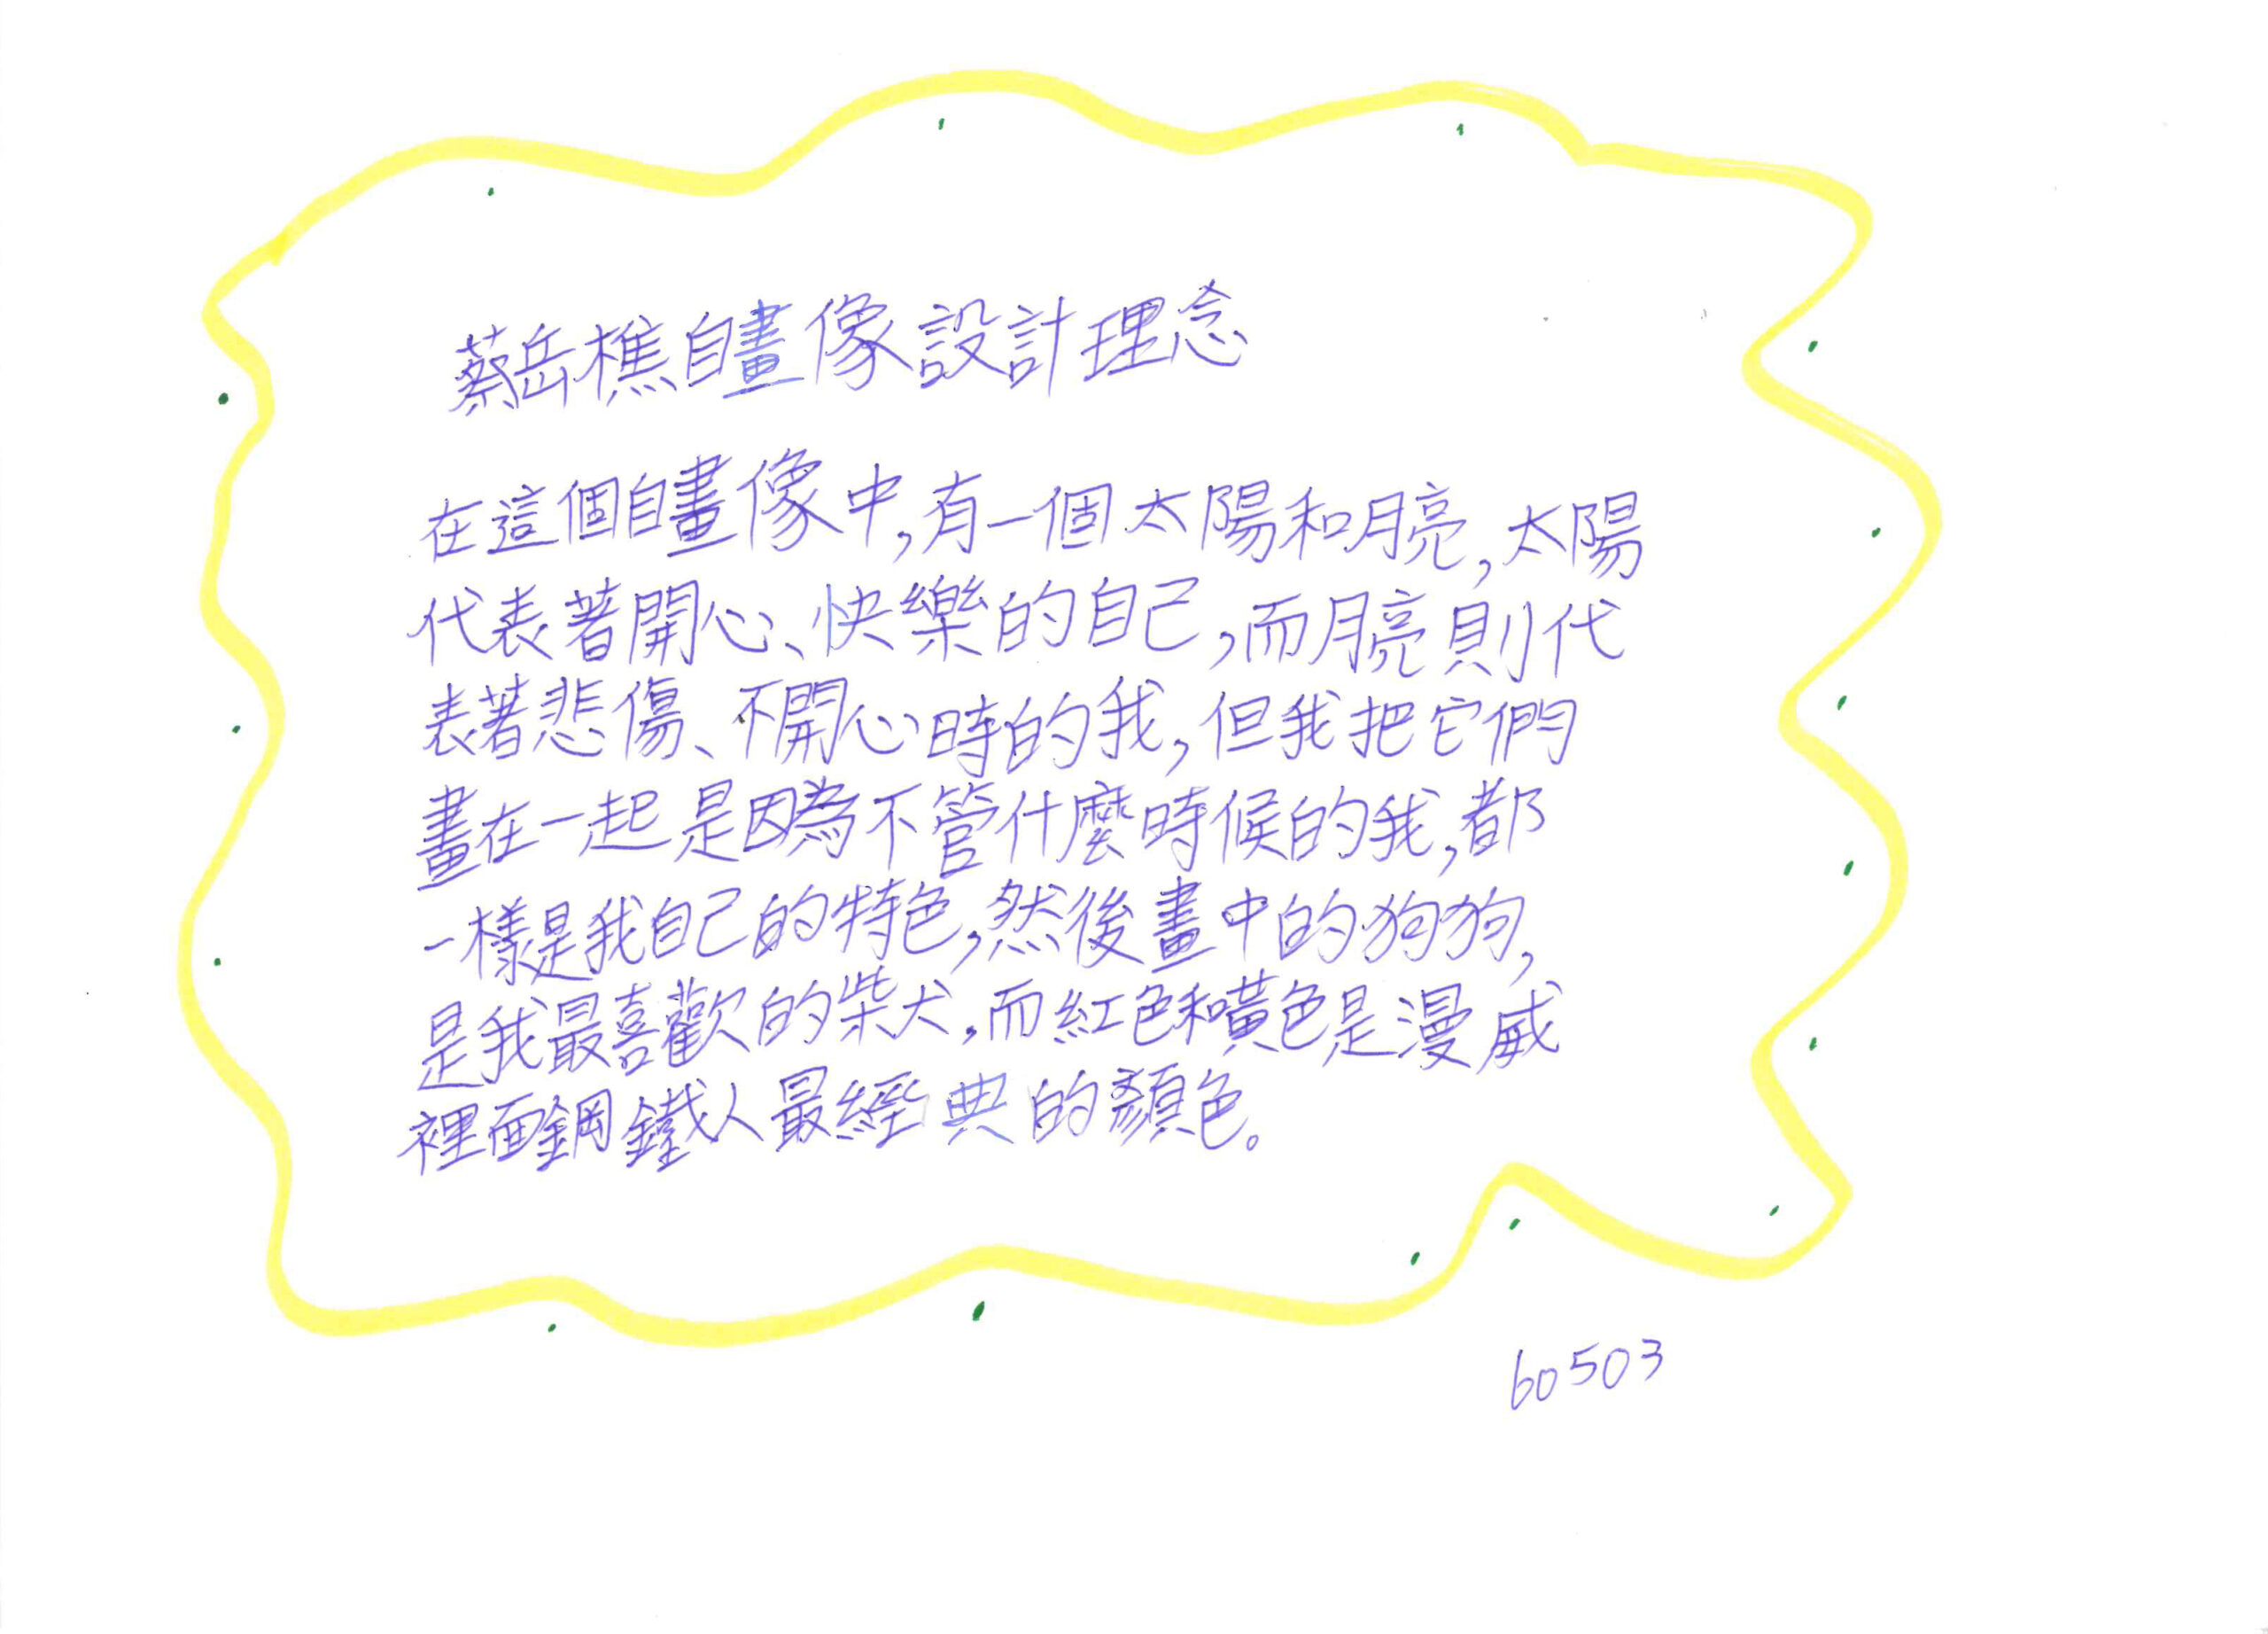 蔡岳樵自畫像設計理念
在這個自畫像中,有一個太陽和月亮,太陽
代表著開心、快樂的自己,而月亮則代
表著悲傷、不開心時的我,但我把它們
畫在一起是因為不管什麼時候的我,都
一樣是我自己的特色,然後畫中的狗狗,
是我最喜歡的柴犬,而紅色和黃色是漫威
裡面鋼鐵人最經典的顏色。
60503